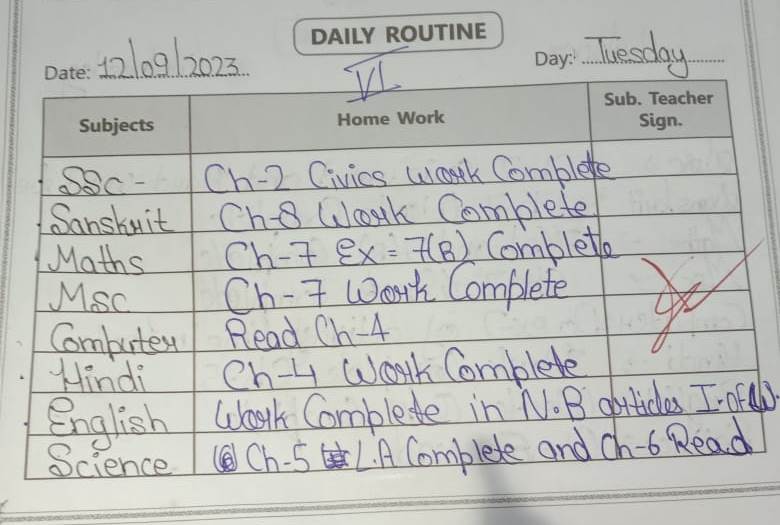 DAILY ROUTINE
Date: 12/09/2023 Day: Tuesday
VI
Subjects Home Work Sub. Teacher Sign.
SSc - Ch-2 Civics Work Complete
Sanskrit Ch-8 Work Complete
Maths Ch-7 Ex = 7(B) Complete
MSC Ch-7 Work Complete
Computer Read Ch-4
Hindi Ch-4 Work Complete
English Work Complete in N.B articles I.OF W.
Science Ch-5 L.A Complete and Ch-6 Read